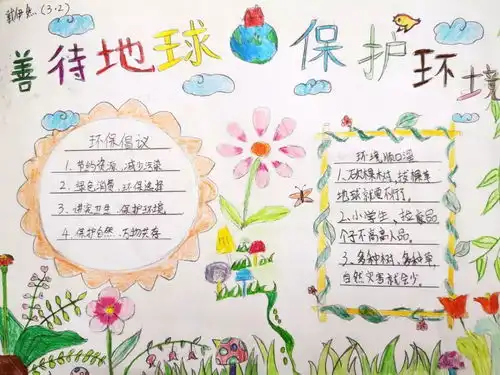 (3.2)
善待地球 保护环境
环保倡议
1. 节约资源、减少污染
2. 绿色消费、环保选择
3. 讲究卫生、保护环境
4. 保护自然、万物共存
环境顺口溜
1. 砍棵树,拔棵草
地球就更不行了。
2. 小学生,捡废品
个子不高高人品。
3. 多种树,多种草
自然灾害就会少。